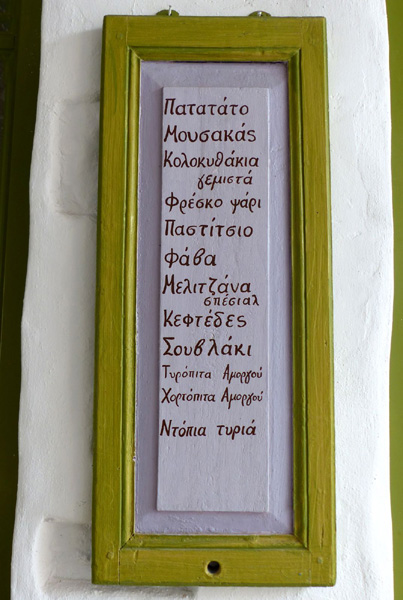 Πατατάτο
Μουσακάς
Κολοκυθάκια
γεμιστά
Φρέσκο ψάρι
Παστίτσιο
Φάβα
Μελιτζάνα
σπέσιαλ
Κεφτέδες
Σουβλάκι
Τυρόπιτα Αμοργού
Χορτόπιτα Αμοργού
Ντόπια τυριά